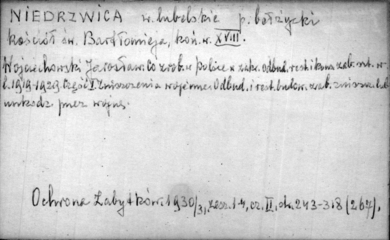 NIEDRZWICA w. lubelskie p. bełżycki
kościół św. Bartłomieja, kon. w. XVIII.
Wojciechowski Jarosław Co zrob. w Polsce w zakr. odbud. rest. i kons. zab. szt. w
l. 1919-1929 Część I. Zniszczenia wojenne. Odbud. i rest. budow. zab. zniszcz. lub
uszkodz. przez wojnę.
Ochrona Zabytków. 1930/31, zesz. 1-4, cz. II, str. 243-318 (267).